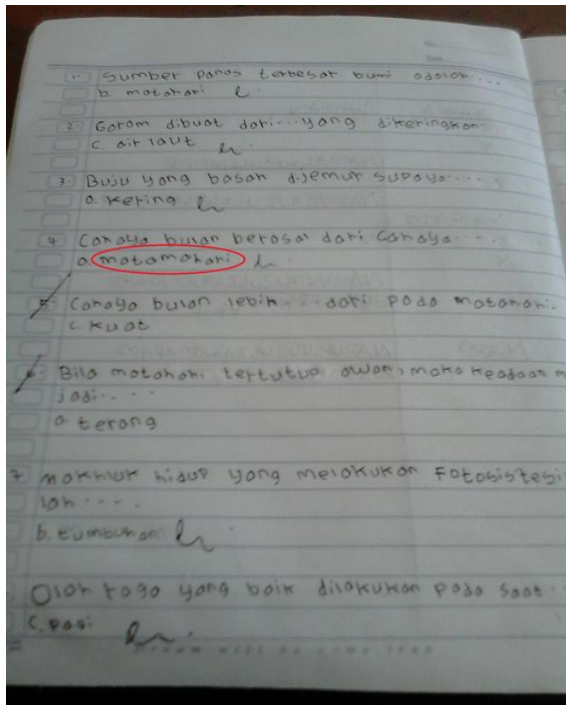 1. Sumber panas terbesar bumi adalah....
b. matahari
2. Garam dibuat dari...yang dikeringkan
c. air laut
3. Buju yang basah dijemur supaya....
a. Kering
4. Cahaya bulan berasal dari cahaya....
a. matamahari
5. Cahaya bulan lebih...dari pada matahari.
c. kuat
6. Bila matahari tertutup awan, maka keadaan m
jadi....
a. terang
7. makhluk hidup yang melakukan Fotosistesi
lah....
b. tumbuhan
Olah raga yang baik dilakukan pada saat..
c. pagi